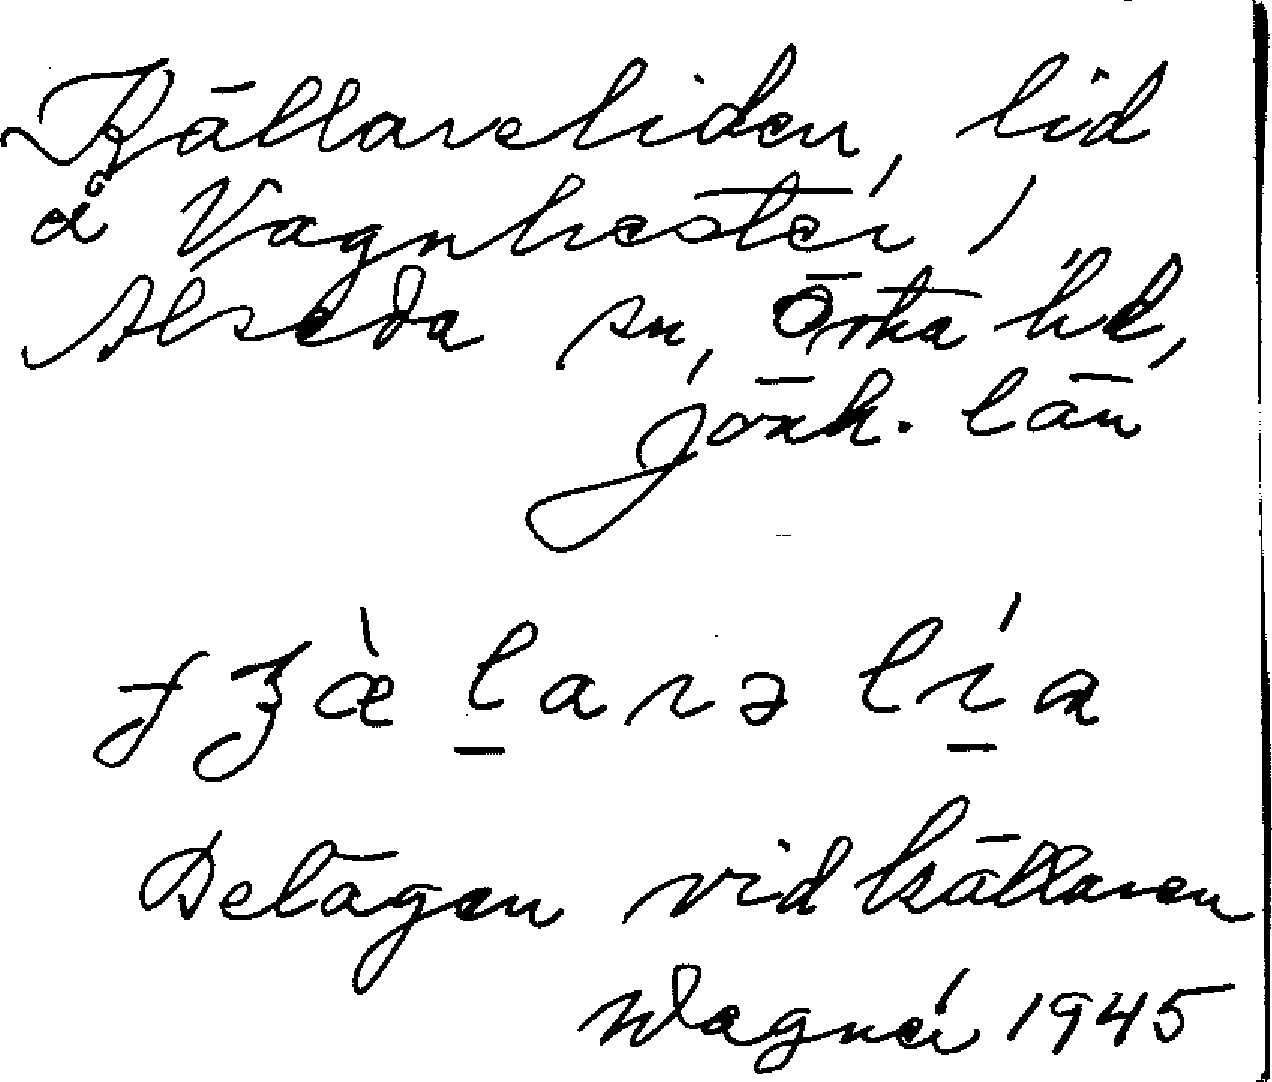 Källareliden, lid
å Vagnhester i
Alseda sn, Östra hd,
Jönk. län
Belägen vid källaren
Wagnér 1945